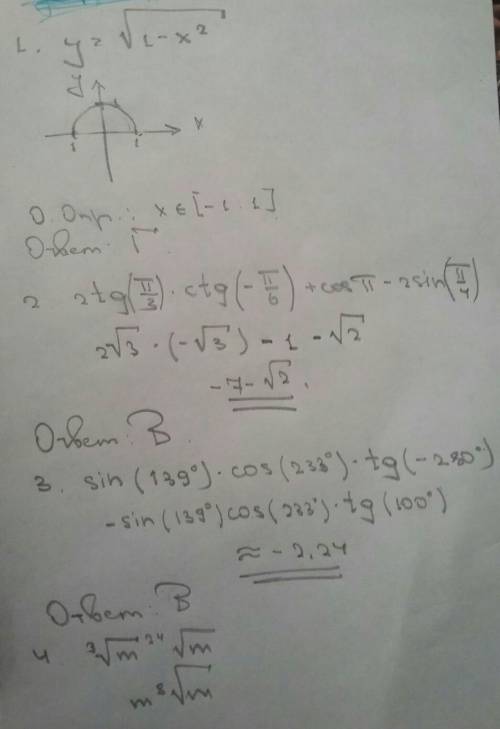 1. y = √(1-x²)
y
1
x
1 1
О. Опр.: x ∈ [-1 1]
Ответ: Г
2 2tg(π/3) · ctg(-π/6) + cosπ - 2sin(π/4)
2√3 · (-√3) - 1 - √2
-7-√2.
Ответ: В.
3. sin(139°) · cos(233°) · tg(-280°)
-sin(139°)cos(233°) · tg(100°)
≈ -2.24
Ответ: В
4 ³√m²⁴ √m
m⁸√m